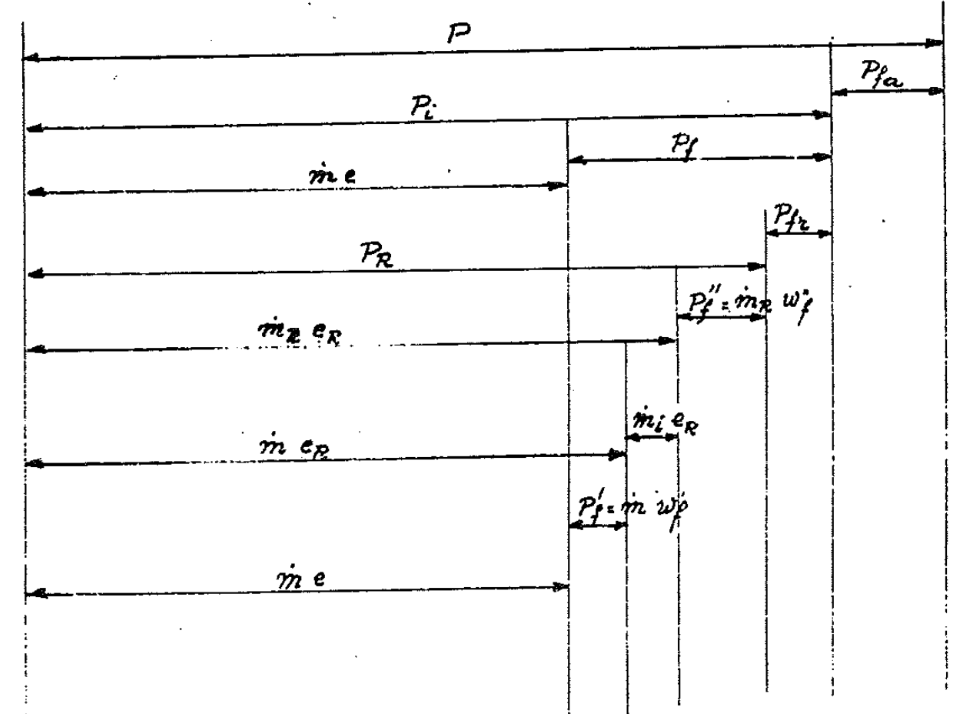 P
P_fa
P_i
P_f
ṁ e
P_fr
P_R
P_f'' = ṁ_R w_f''
ṁ_R e_R
ṁ_i e_R
ṁ e_R
P_f' = ṁ w_f'
ṁ e